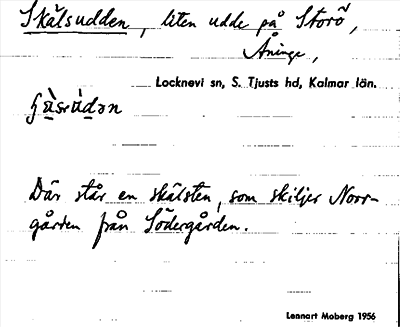 Skälsudden, liten udde på Storö,
Åninge,
Locknevi sn, S. Tjusts hd, Kalmar län.
Där står en skälsten, som skiljer Norr-
gården från Södergården.
Lennart Moberg 1956